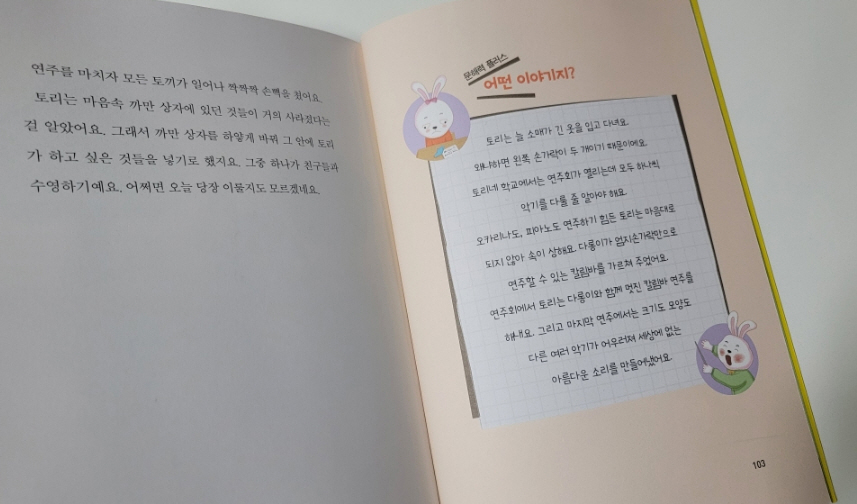 연주를 마치자 모든 토끼가 일어나 짝짝짝 손뼉을 쳤어요.
토리는 마음속 까만 상자에 있던 것들이 거의 사라졌다는
걸 알았어요. 그래서 까만 상자를 하얗게 바꿔 그 안에 토리
가 하고 싶은 것들을 넣기로 했지요. 그중 하나가 친구들과
수영하기예요. 어쩌면 오늘 당장 이룰지도 모르겠네요.
문해력 플러스
어떤 이야기지?
토리는 늘 소매가 긴 옷을 입고 다녀요.
왜냐하면 왼쪽 손가락이 두 개이기 때문이에요.
토리네 학교에서는 연주회가 열리는데 모두 하나씩
악기를 다룰 줄 알아야 해요.
오카리나도, 피아노도 연주하기 힘든 토리는 마음대로
되지 않아 속이 상해요. 다롱이가 엄지손가락만으로
연주할 수 있는 칼림바를 가르쳐 주었어요.
연주회에서 토리는 다롱이와 함께 멋진 칼림바 연주를
해내요. 그리고 마지막 연주에서는 크기도 모양도
다른 여러 악기가 어우러져 세상에 없는
아름다운 소리를 만들어냈어요.
103